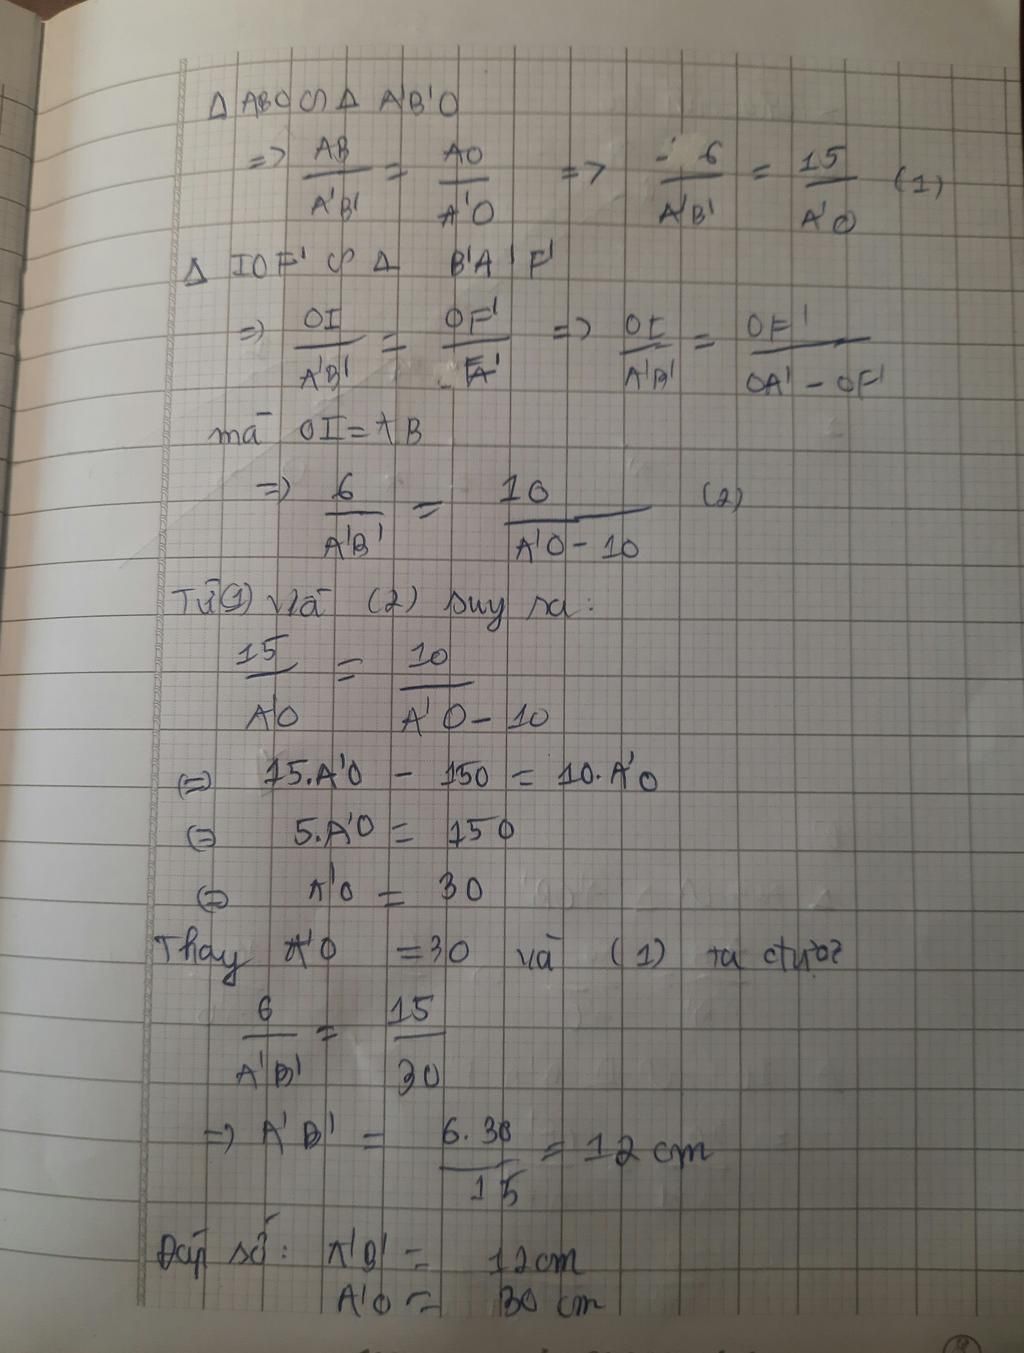 Δ ABO ∽ Δ A'B'O
=> AB/A'B' = AO/A'O => 6/A'B' = 15/A'O (1)
Δ IOF' ∽ Δ B'A'F'
=> OI/A'B' = OF'/FA' => OI/A'B' = OF'/OA' - OF'
mà OI = AB
=> 6/A'B' = 10/A'O - 10 (2)
Từ (1) và (2) suy ra:
15/A'O = 10/A'O - 10
(=) 15.A'O - 150 = 10.A'O
(=) 5.A'O = 150
(=) A'O = 30
Thay A'O = 30 và (1) ta được
6/A'B' = 15/30
=> A'B' = 6.30/15 = 12 cm
Đáp số: A'B' = 12cm
A'O = 30 cm